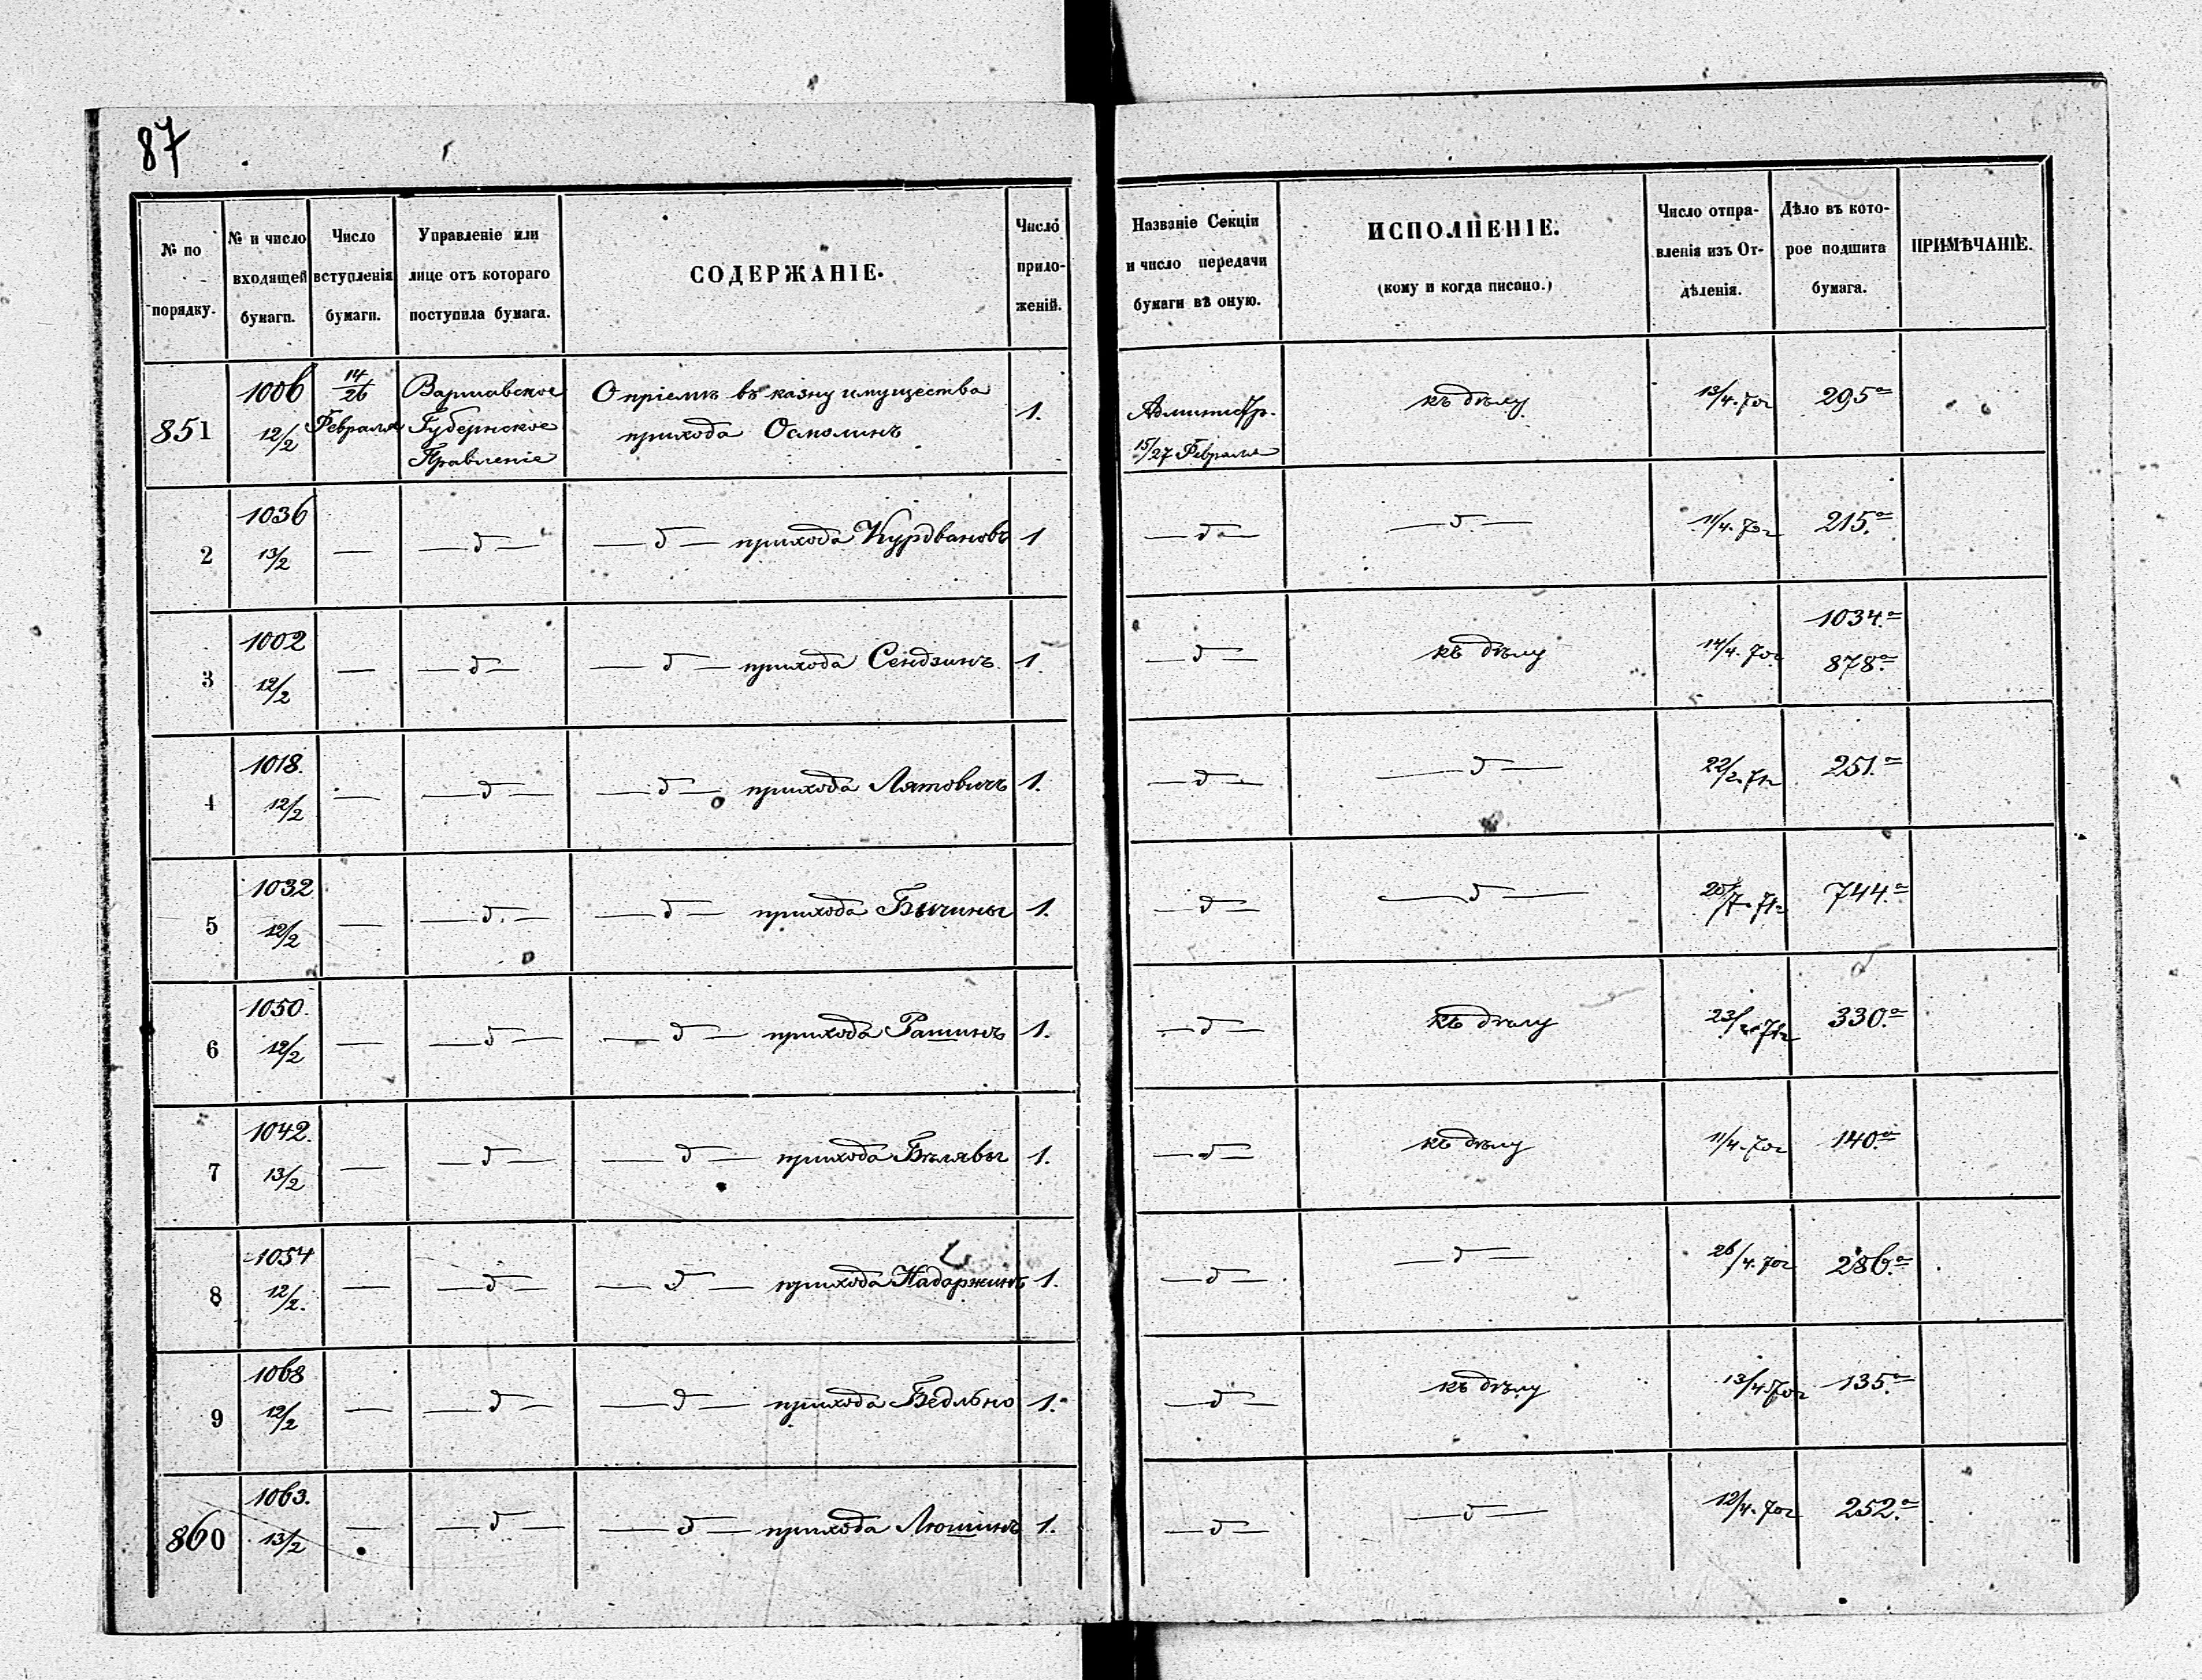 87
№ по порядку.
№ и число входящей бумаги.
Число вступленія бумаги.
Управленіе или лице отъ котораго поступила бумага.
СОДЕРЖАНІЕ.
Число прило-женій.
Названіе Секціи и число передачи бумаги въ оную.
ИСПОЛНЕНІЕ.
(кому и когда писано.)
Число отпра-вленія изъ От-дѣленія.
Дѣло въ кото-рое подшита бумага.
ПРИМѢЧАНІЕ.
851 1006 12/2 14/26 Февраля Варшавское Губернское Правленіе О пріемѣ въ казну имущества прихода Осмолинъ 1. Администр. 15/27 Февраля къ дѣлу 13/4. 70г 295а
2 1036 13/2 — — д — — д — прихода Курдвановъ 1 — д — — д — 11/4. 70г 215.а
3 1002 12/2 — — д — — д — прихода Сендзинъ. 1 — д — къ дѣлу 14/4. 70г 1034.а 878а
4 1018. 12/2 — — д — — д — прихода Лятовичъ 1. — д — — д — 22/2. 71г 251.а
5 1032 12/2 — — д — — д — прихода Бычины 1. — д — — д — 20/7. 71г 744.а
6 1050. 12/2 — — д — — д — прихода Рашинъ 1. — д — къ дѣлу 23/2. 71г 330.а
7 1042. 13/2 — — д — — д — прихода Бѣлявы 1. — д — къ дѣлу 11/4. 70г 140.а
8 1054 12/2. — — д — — д — прихода Надаржинъ 1. — д — — д — 26/4. 70г 286.а
9 1068 12/2 — — д — — д — прихода Бедльно 1. — д — къ дѣлу 13/4. 70г 135.а
860 1063. 13/2 — — д — — д — прихода Люшинъ 1. — д — — д — 12/4. 70г 252.а